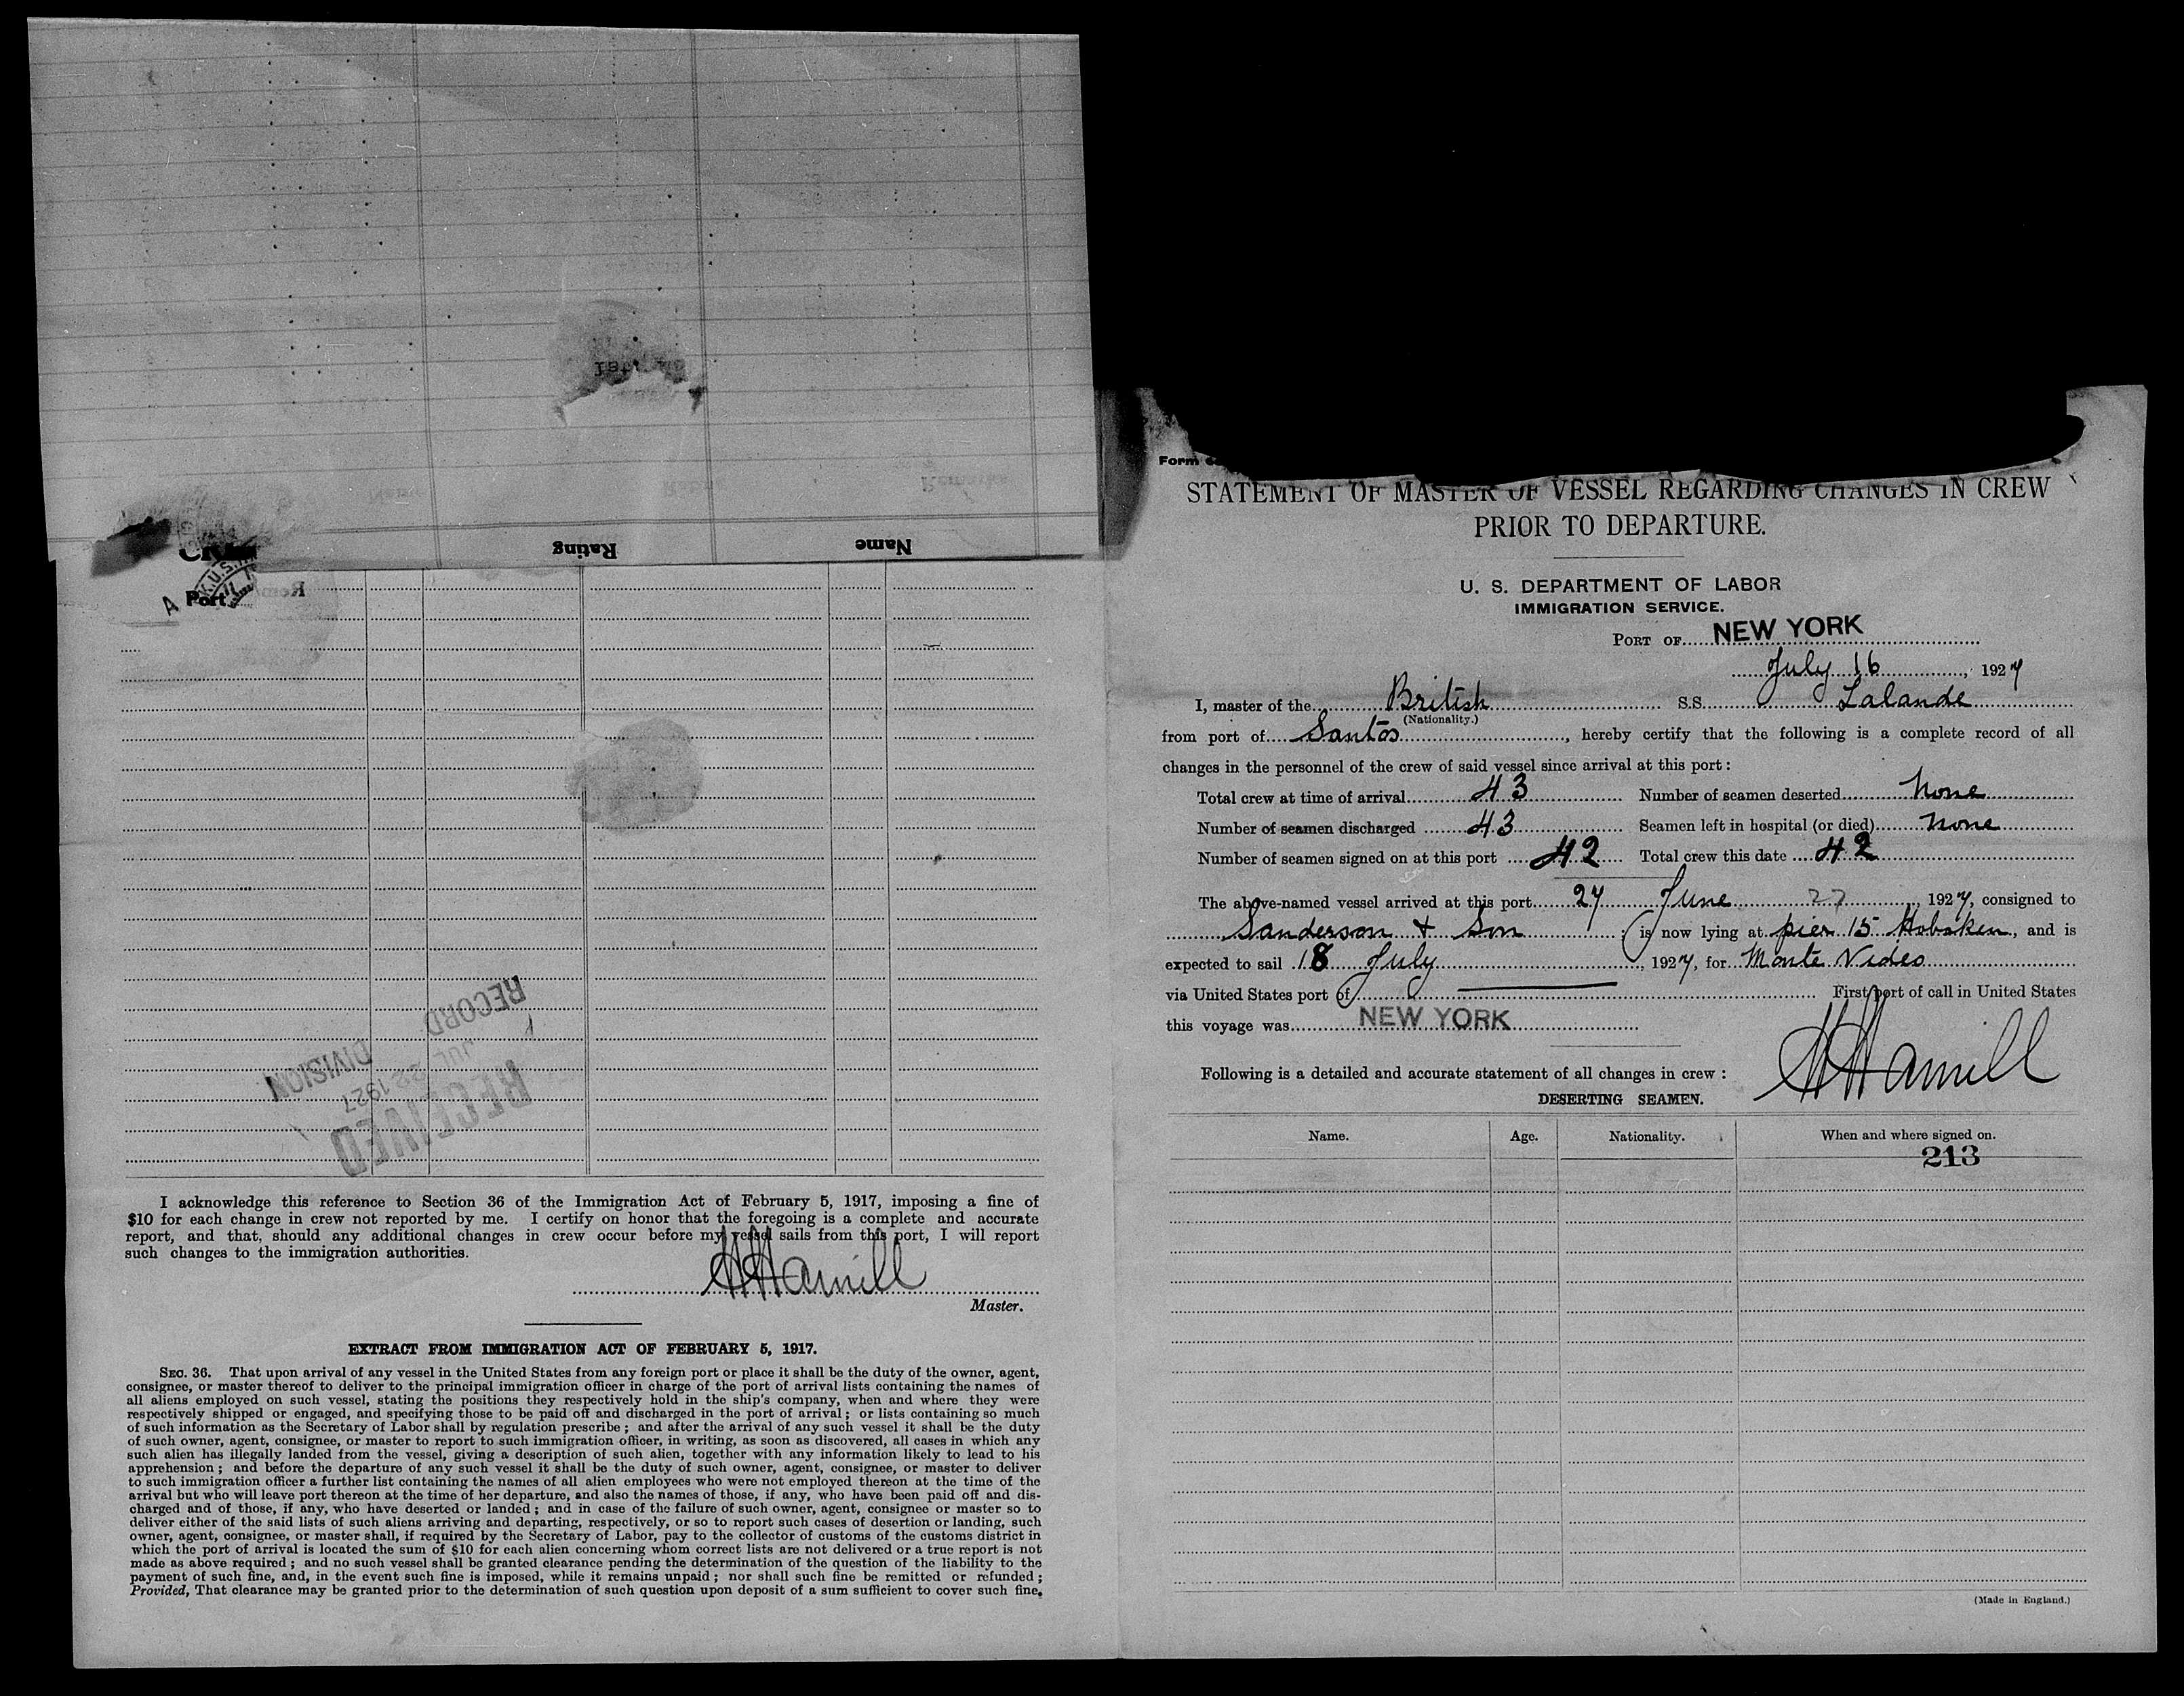 Rating
Name
Port
I acknowledge this reference to Section 36 of the Immigration Act of February 5, 1917, imposing a fine of
$10 for each change in crew not reported by me. I certify on honor that the foregoing is a complete and accurate
report, and that, should any additional changes in crew occur before my vessel sails from this port, I will report
such changes to the immigration authorities.
Master.
RECEIVED
JUL 22 1927
RECORD
DIVISION
EXTRACT FROM IMMIGRATION ACT OF FEBRUARY 5, 1917.
SEC. 36. That upon arrival of any vessel in the United States from any foreign port or place it shall be the duty of the owner, agent,
consignee, or master thereof to deliver to the principal immigration officer in charge of the port of arrival lists containing the names of
all aliens employed on such vessel, stating the positions they respectively hold in the ship's company, when and where they were
respectively shipped or engaged, and specifying those to be paid off and discharged in the port of arrival; or lists containing so much
of such information as the Secretary of Labor shall by regulation prescribe; and after the arrival of any such vessel it shall be the duty
of such owner, agent, consignee, or master to report to such immigration officer, in writing, as soon as discovered, all cases in which any
such alien has illegally landed from the vessel, giving a description of such alien, together with any information likely to lead to his
apprehension; and before the departure of any such vessel it shall be the duty of such owner, agent, consignee, or master to deliver
to such immigration officer a further list containing the names of all alien employees who were not employed thereon at the time of the
arrival but who will leave port thereon at the time of her departure, and also the names of those, if any, who have been paid off and dis-
charged and of those, if any, who have deserted or landed; and in case of the failure of such owner, agent, consignee or master so to
deliver either of the said lists of such aliens arriving and departing, respectively, or so to report such cases of desertion or landing, such
owner, agent, consignee, or master shall, if required by the Secretary of Labor, pay to the collector of customs of the customs district in
which the port of arrival is located the sum of $10 for each alien concerning whom correct lists are not delivered or a true report is not
made as above required; and no such vessel shall be granted clearance pending the determination of the question of the liability to the
payment of such fine, and, in the event such fine is imposed, while it remains unpaid; nor shall such fine be remitted or refunded;
Provided, That clearance may be granted prior to the determination of such question upon deposit of a sum sufficient to cover such fine.
Form
STATEMENT OF MASTER OF VESSEL REGARDING CHANGES IN CREW
PRIOR TO DEPARTURE.
U. S. DEPARTMENT OF LABOR
IMMIGRATION SERVICE.
PORT OF NEW YORK
July 16, 1927
I, master of the British S.S. Lalande
(Nationality.)
from port of Santos, hereby certify that the following is a complete record of all
changes in the personnel of the crew of said vessel since arrival at this port:
Total crew at time of arrival 43 Number of seamen deserted None
Number of seamen discharged 43 Seamen left in hospital (or died) None
Number of seamen signed on at this port 42 Total crew this date 42
The above-named vessel arrived at this port 27 June 27, 1927, consigned to
Sanderson & Son; is now lying at pier 15 Hoboken, and is
expected to sail 18 July, 1927, for Monte Video
via United States port of First port of call in United States
this voyage was NEW YORK
Following is a detailed and accurate statement of all changes in crew:
DESERTING SEAMEN.
Name. Age. Nationality. When and where signed on.
213
(Made in England.)